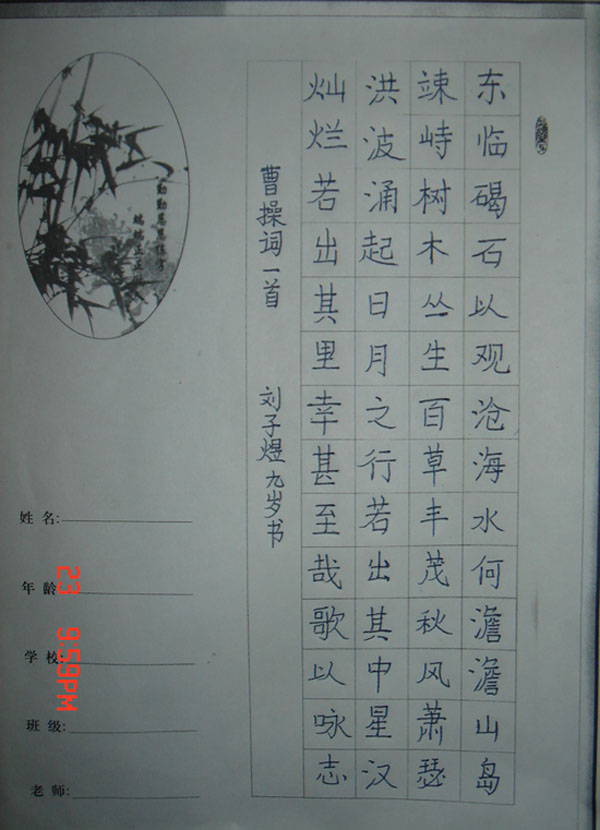 东临碣石以观沧海水何澹澹山岛
竦峙树木丛生百草丰茂秋风萧瑟
洪波涌起日月之行若出其中星汉
灿烂若出其里幸甚至哉歌以咏志
曹操词一首 刘子煜九岁书
姓名:
年龄:
学校:
班级:
老师:
23 9:59PM